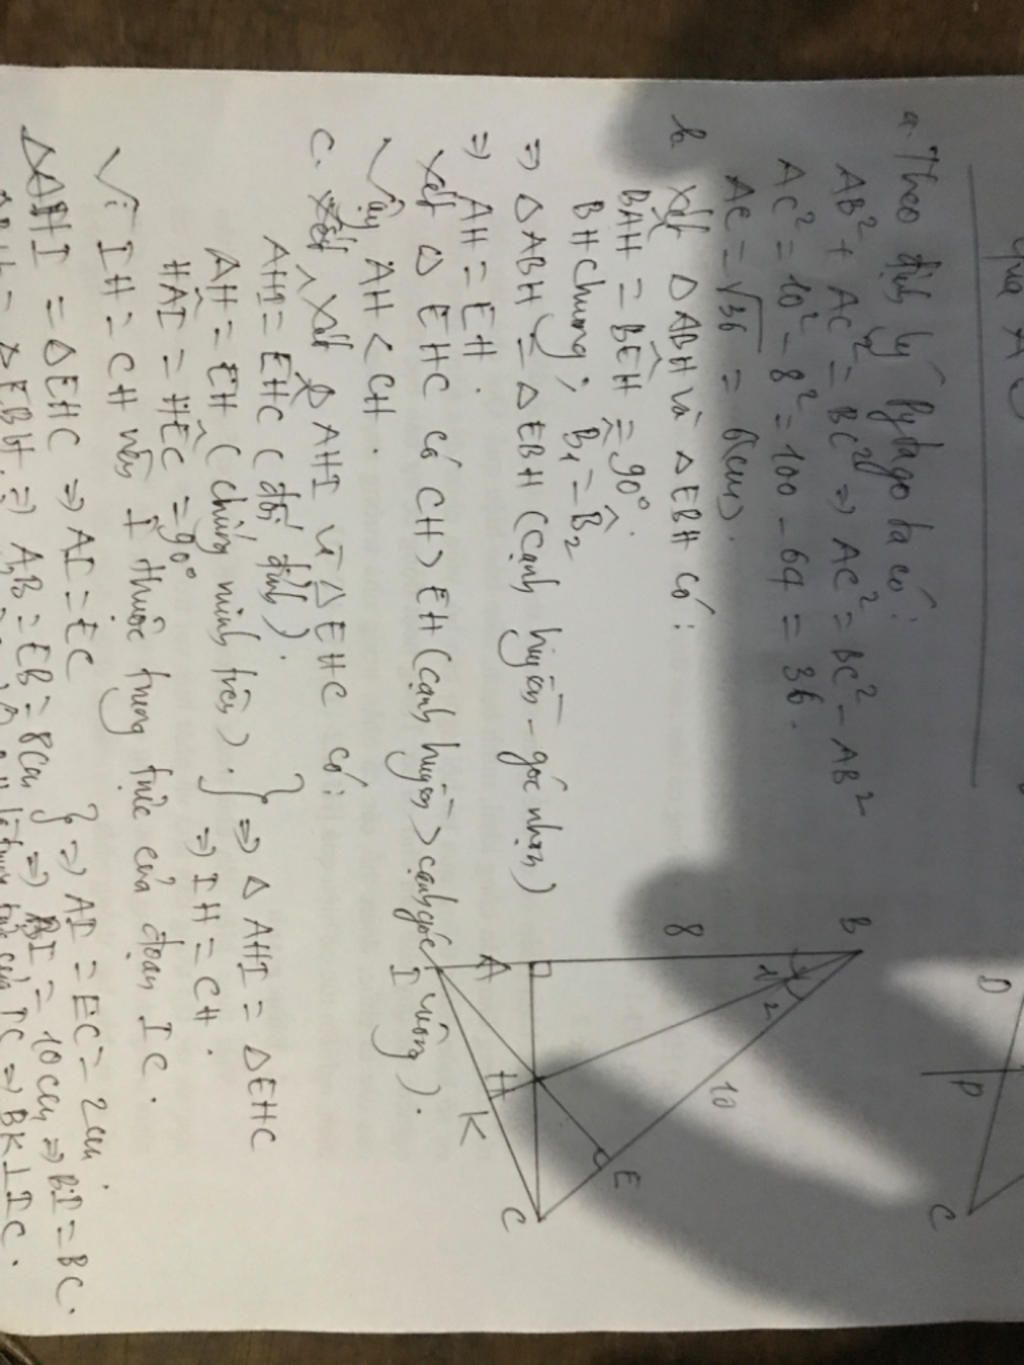 qua AC
a. Theo định lý Pytago ta có:
AB² + AC² = BC² ⇒ AC² = BC² - AB²
AC² = 10² - 8² = 100 - 64 = 36.
AC = √36 = 6(cm).
b Xét ΔABH và ΔEBH có:
BÂH = BÊH = 90°.
BH chung; B̂1 = B̂2
⇒ ΔABH = ΔEBH (cạnh huyền - góc nhọn)
⇒ AH = EH.
Xét Δ EHC có CH > EH (cạnh huyền > cạnh góc vuông).
Vậy AH < CH.
c. Xét ΔAHI và ΔEHC có:
AĤI = EĤC (đối đỉnh).
AH = EH (chứng minh trên). } ⇒ Δ AHI = ΔEHC
HÂI = HÊC = 90° ⇒ IH = CH.
Vì IH = CH nên I thuộc trung trực của đoạn IC.
ΔAHI = ΔEHC ⇒ AI = EC } ⇒ AI = EC = 2cm.
ΔEBH ⇒ AB = EB = 8cm ⇒ BI = 10cm ⇒ BI = BC.
IC ⇒ BK ⊥ IC.
B
8
1
2
10
A
H
E
I
K
C
D
P
C